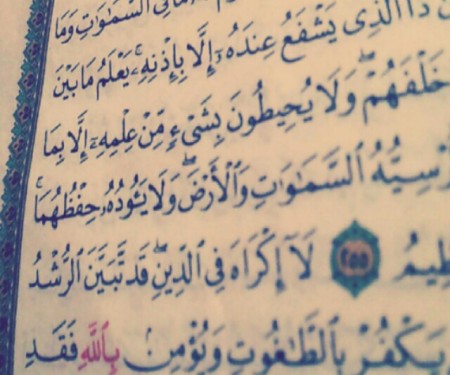 مَا فِى ٱلسَّمَـٰوَٰتِ وَمَا
ذَا ٱلَّذِى يَشْفَعُ عِندَهُۥٓ إِلَّا بِإِذْنِهِۦ ۚ يَعْلَمُ مَا بَيْنَ
خَلْفَهُمْ ۖ وَلَا يُحِيطُونَ بِشَىْءٍ مِّنْ عِلْمِهِۦٓ إِلَّا بِمَا
رْسِيُّهُ ٱلسَّمَـٰوَٰتِ وَٱلْأَرْضَ ۖ وَلَا يَـُٔودُهُۥ حِفْظُهُمَا ۚ
ظِيمُ ٢٥٥ لَآ إِكْرَاهَ فِى ٱلدِّينِ ۖ قَد تَّبَيَّنَ ٱلرُّشْدُ
يَكْفُرْ بِٱلطَّـٰغُوتِ وَيُؤْمِنۢ بِٱللَّهِ فَقَدِ